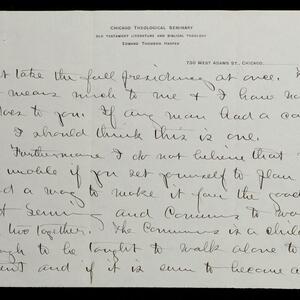 CHICAGO THEOLOGICAL SEMINARY
OLD TESTAMENT LITERATURE AND BIBLICAL THEOLOGY
EDWARD THOMSON HARPER
730 WEST ADAMS ST., CHICAGO
t take the full presidency at once.
means much to me & I have no
does to you. If any man had a ca
I should think this is one.
Furthermore I do not believe that
if you set yourself to plan
d a way to make it for the good
Seminary and Commons to wo
two together. The Commons is a child
ugh to be taught to walk alone to
ent and if it is ever to become a